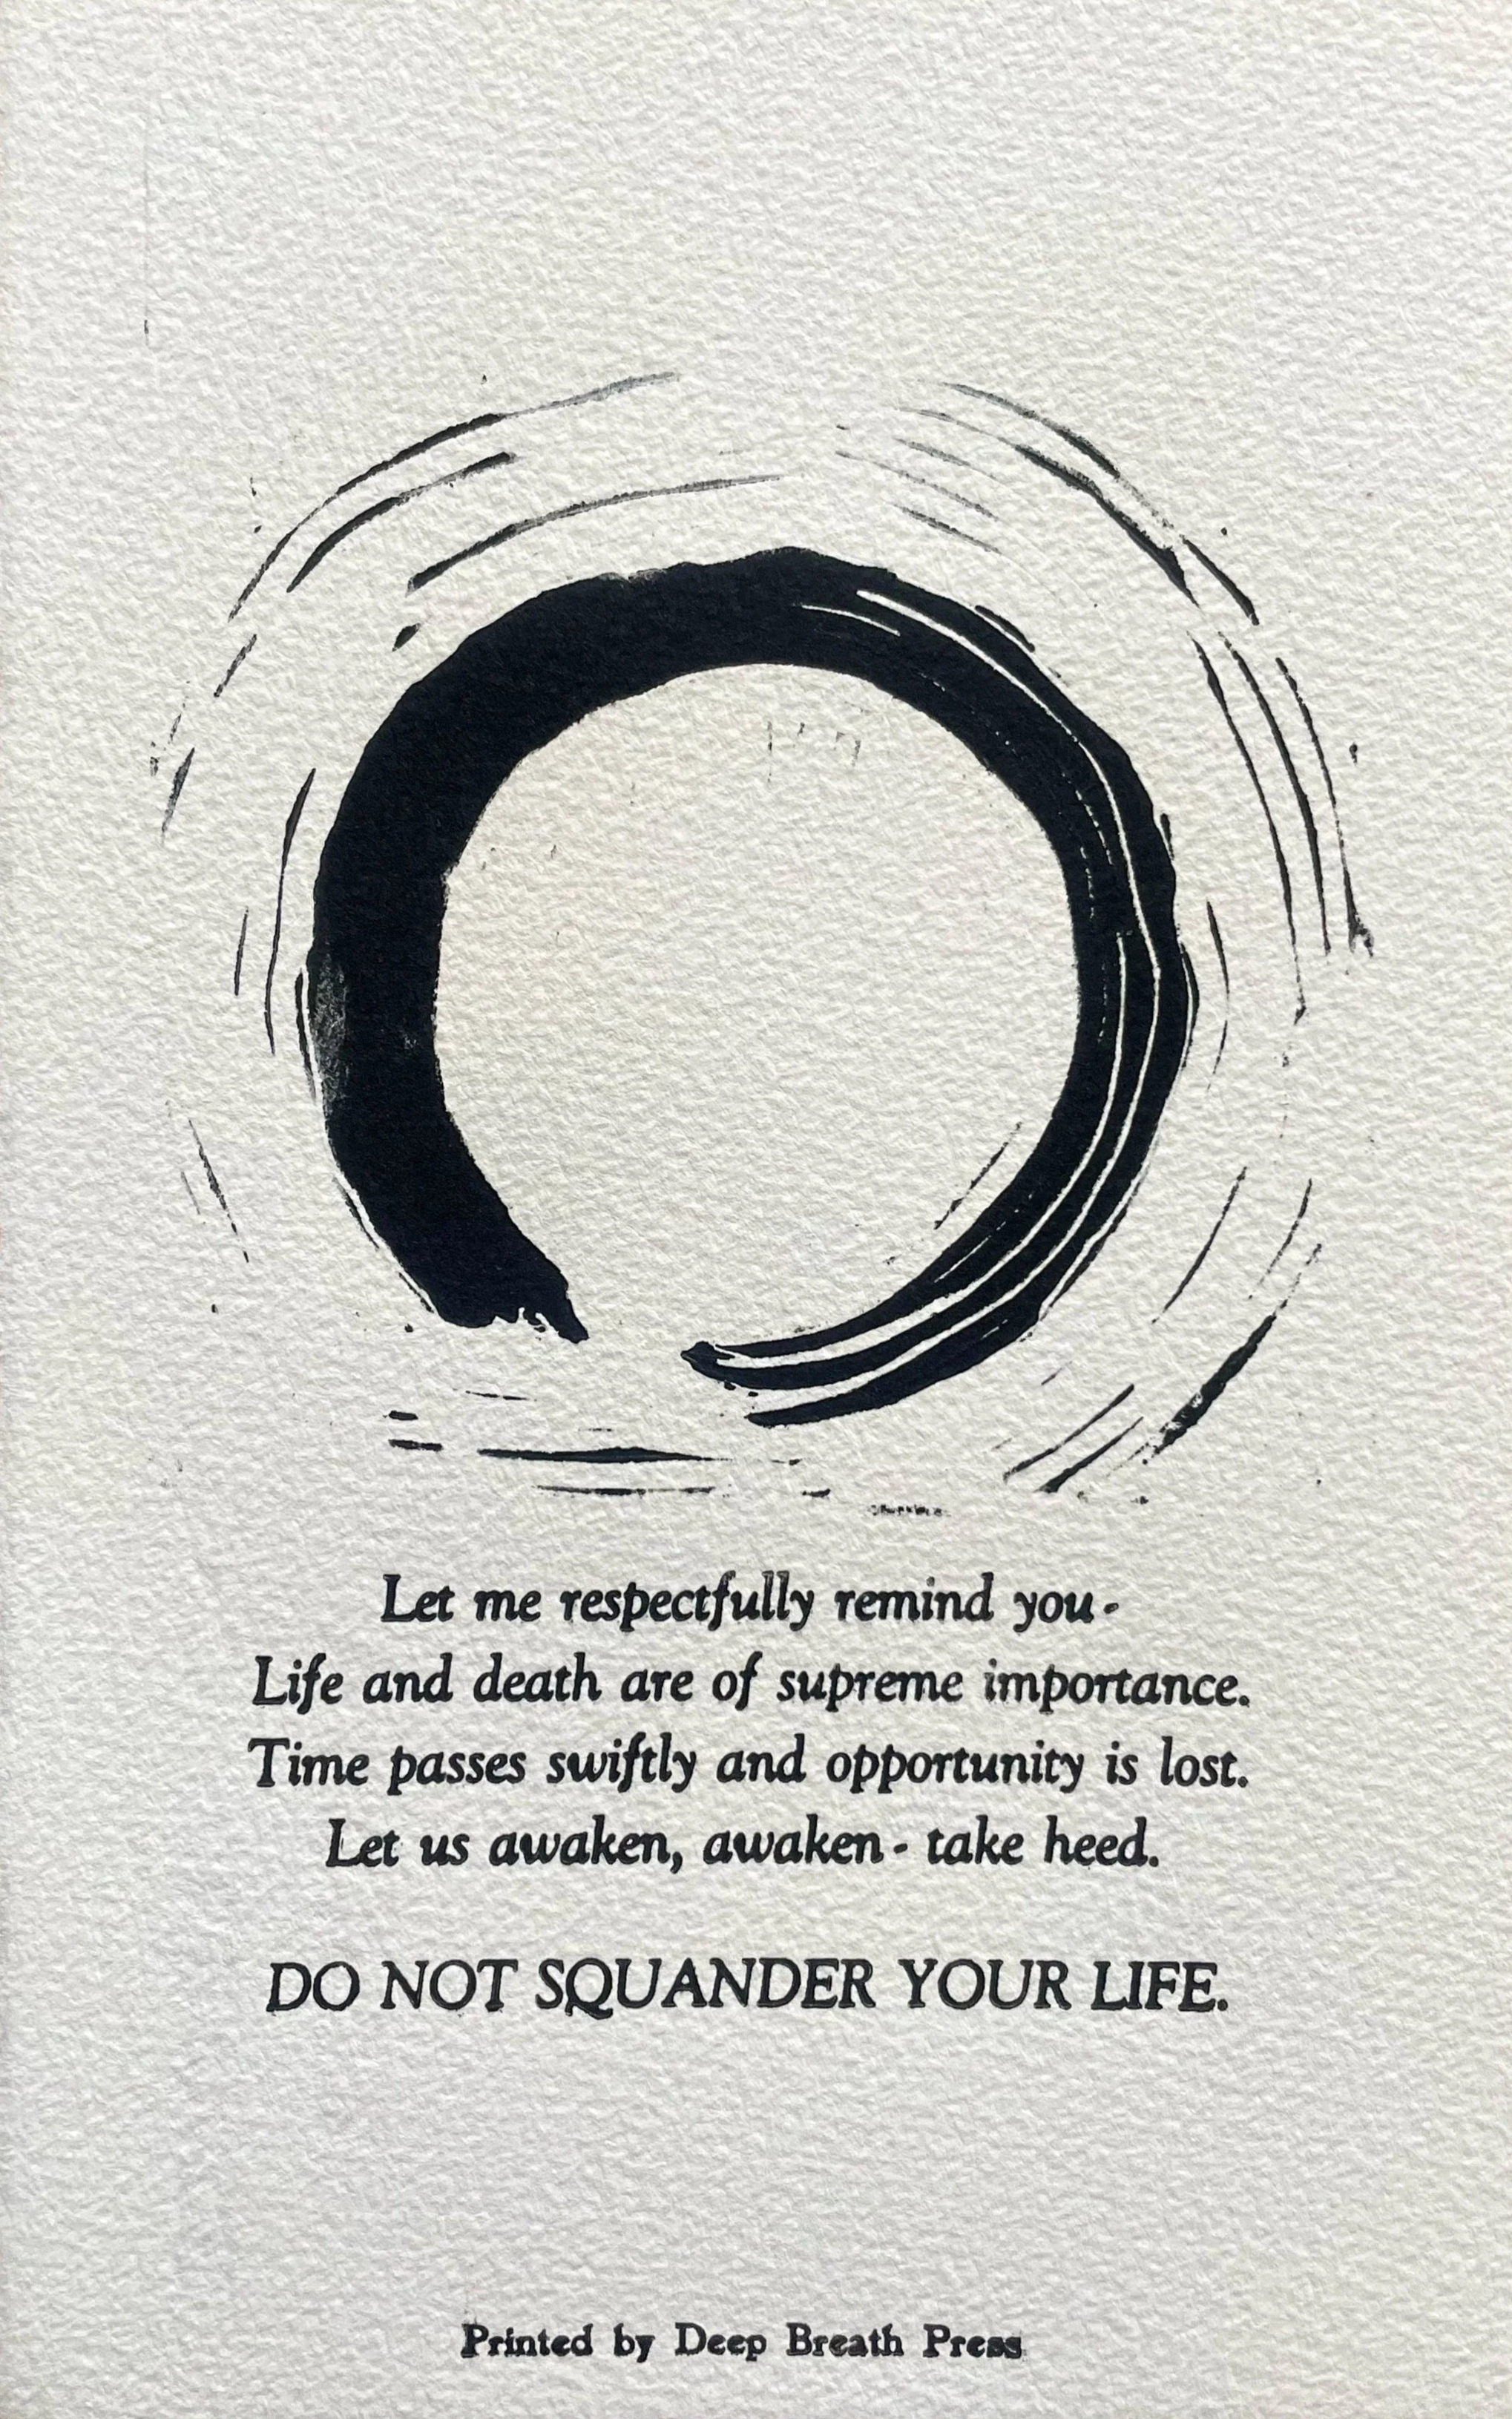 Let me respectfully remind you-
Life and death are of supreme importance.
Time passes swiftly and opportunity is lost.
Let us awaken, awaken- take heed.
DO NOT SQUANDER YOUR LIFE.
Printed by Deep Breath Press